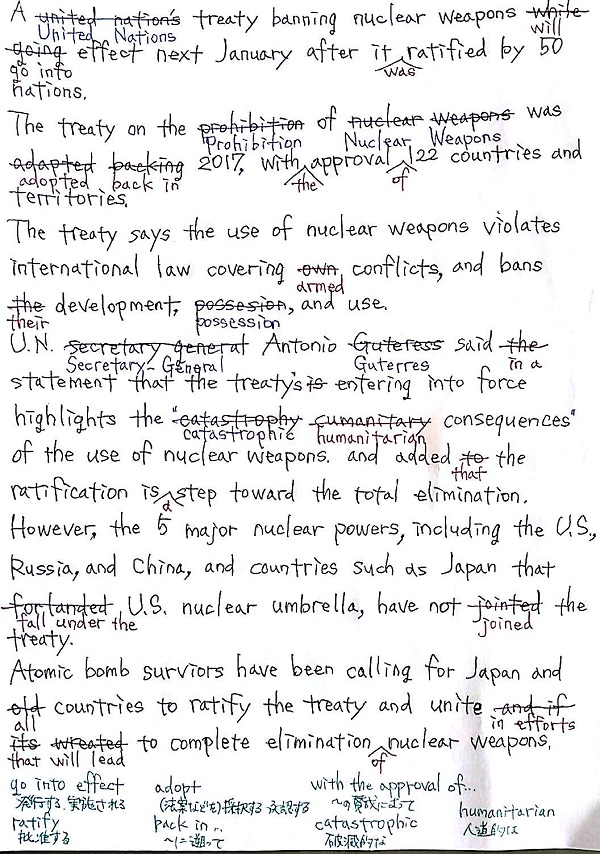 A united nation's treaty banning nuclear weapons while
United Nations will
going effect next January after it ratified by 50
go into was
nations.
The treaty on the prohibition of nuclear weapons was
Prohibition Nuclear Weapons
adapted backing 2017, with approval 122 countries and
adopted back in the of
territories.
The treaty says the use of nuclear weapons violates
international law covering own conflicts, and bans
armed
the development, possesion, and use.
their possession
U.N. secretary general Antonio Guteress said the
Secretary-General Guterres in a
statement that the treaty's is entering into force
highlights the "catastrophy cumanitary consequences"
catastrophic humanitarian
of the use of nuclear weapons. and added to the
that
ratification is step toward the total elimination.
a
However, the 5 major nuclear powers, including the U.S.,
Russia, and China, and countries such as Japan that
forlanded U.S. nuclear umbrella, have not jointed the
fall under the joined
treaty.
Atomic bomb surviors have been calling for Japan and
old countries to ratify the treaty and unite and if
all in efforts
its wreated to complete elimination nuclear weapons.
that will lead of
go into effect adopt with the approval of...
発行する、実施される (法案などを)採択する、承認する 〜の賛成によって humanitarian
ratify back in... catastrophic 人道的な
批准する 〜に遡って 破滅的な